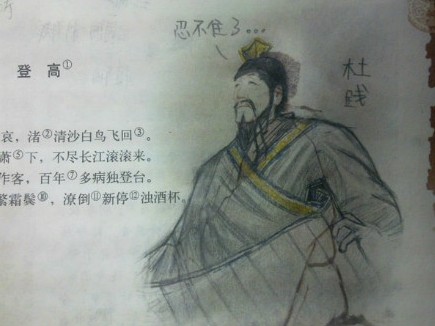 忍不住了...
登高①
杜
贱
哀，渚②清沙白鸟飞回③。
萧⑤下，不尽长江滚滚来。
作客，百年⑦多病独登台。
繁霜鬓⑩，潦倒⑪新停⑫浊酒杯。